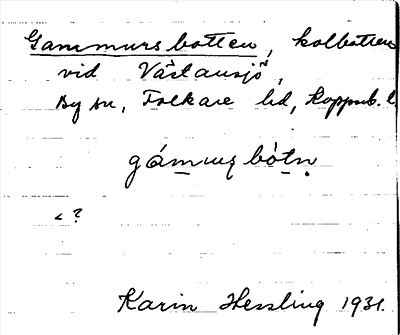 Gammursbotten, kolbotten
vid Västansjö,
By sn, Folkare hd, Koppub. l.
gámmuʂbòtn̥
< ?
Karin Hessling 1931.